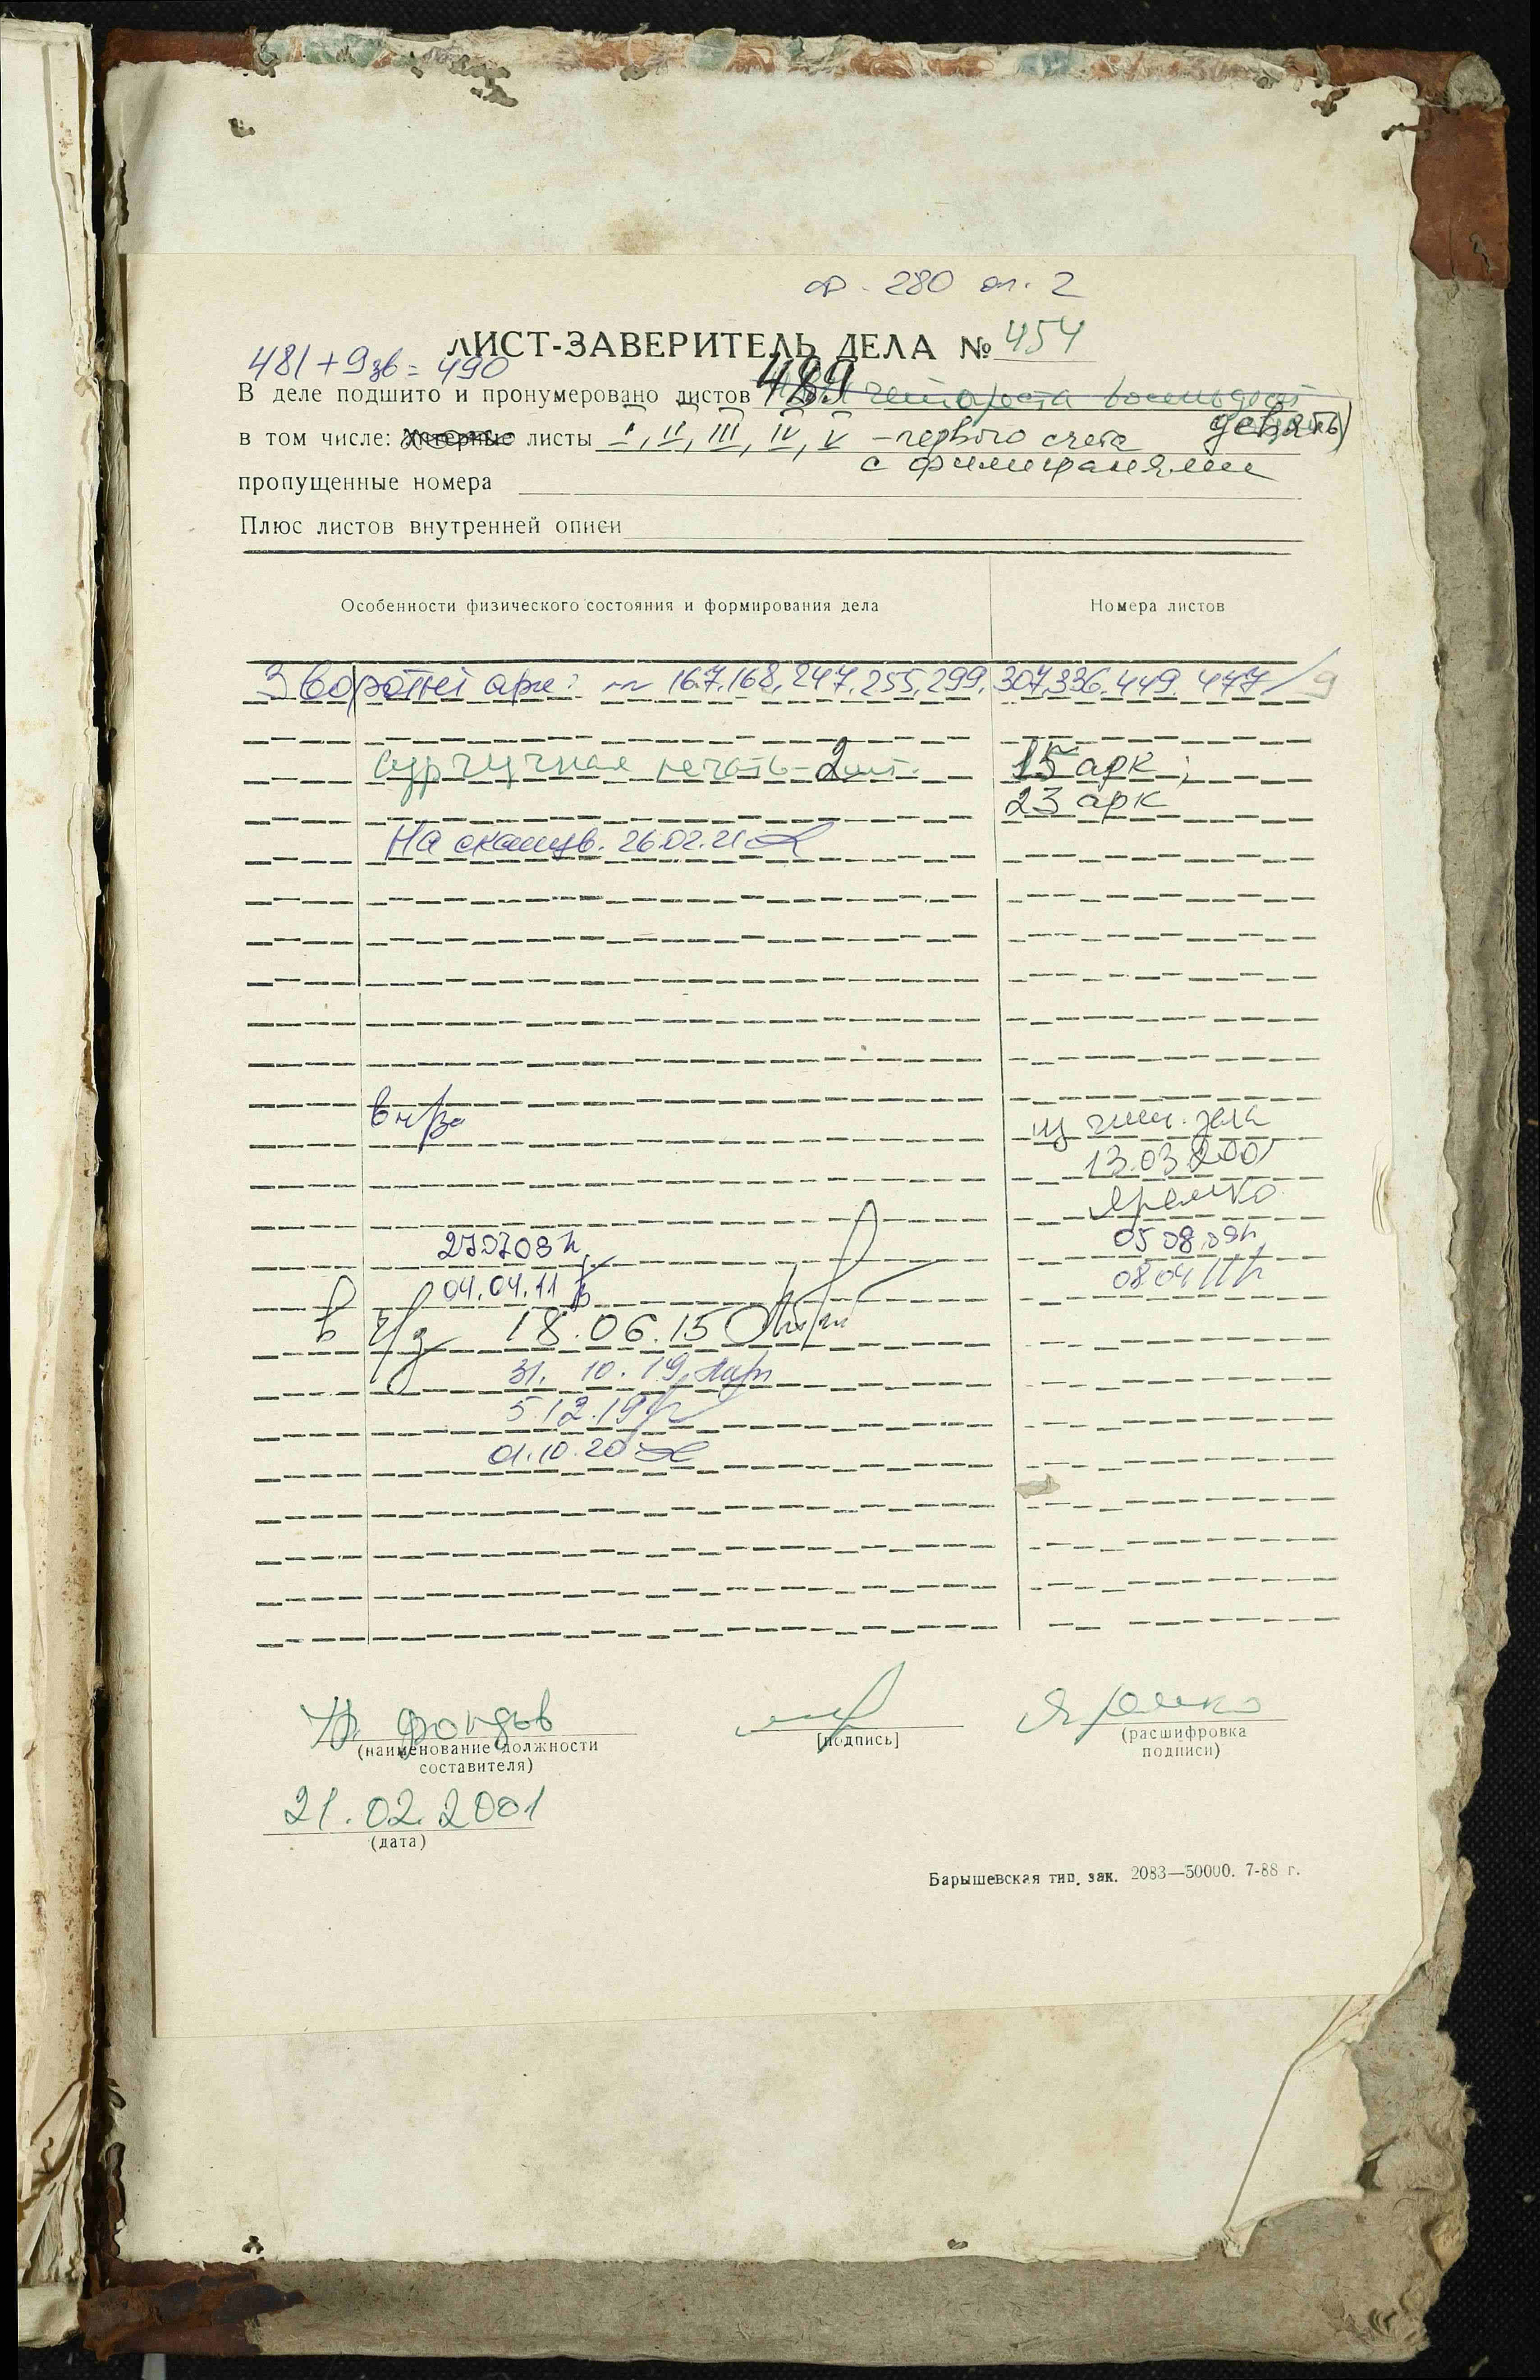 ф. 280 оп. 2
ЛИСТ-ЗАВЕРИТЕЛЬ ДЕЛА № 454
481 + 9 зв = 490
В деле подшито и пронумеровано листов 489 четыреста восемьдесят
девять)
в том числе: литерные листы I, II, III, IV, V – первого счета
с филигранями
пропущенные номера
Плюс листов внутренней описи
Особенности физического состояния и формирования дела
Номера листов
Зворотні арк: 167, 168, 247, 255, 299, 307, 336, 449, 477 / 9
Сургучная печать – 2 шт. 15 арк;
23 арк
На сканув. 26.02.21
в ч/з
из чит. зала
13.03.2001
Яремко
270708 05 08.09
04.04.11 08 04 11
в ч/з 18.06.15
31. 10. 19
5.12.19
01.10.20
фондов
Яремко
(наименование должности
составителя)
[подпись]
(расшифровка
подписи)
21.02.2001
(дата)
Барышевская тип. зак. 2083—50000. 7-88 г.